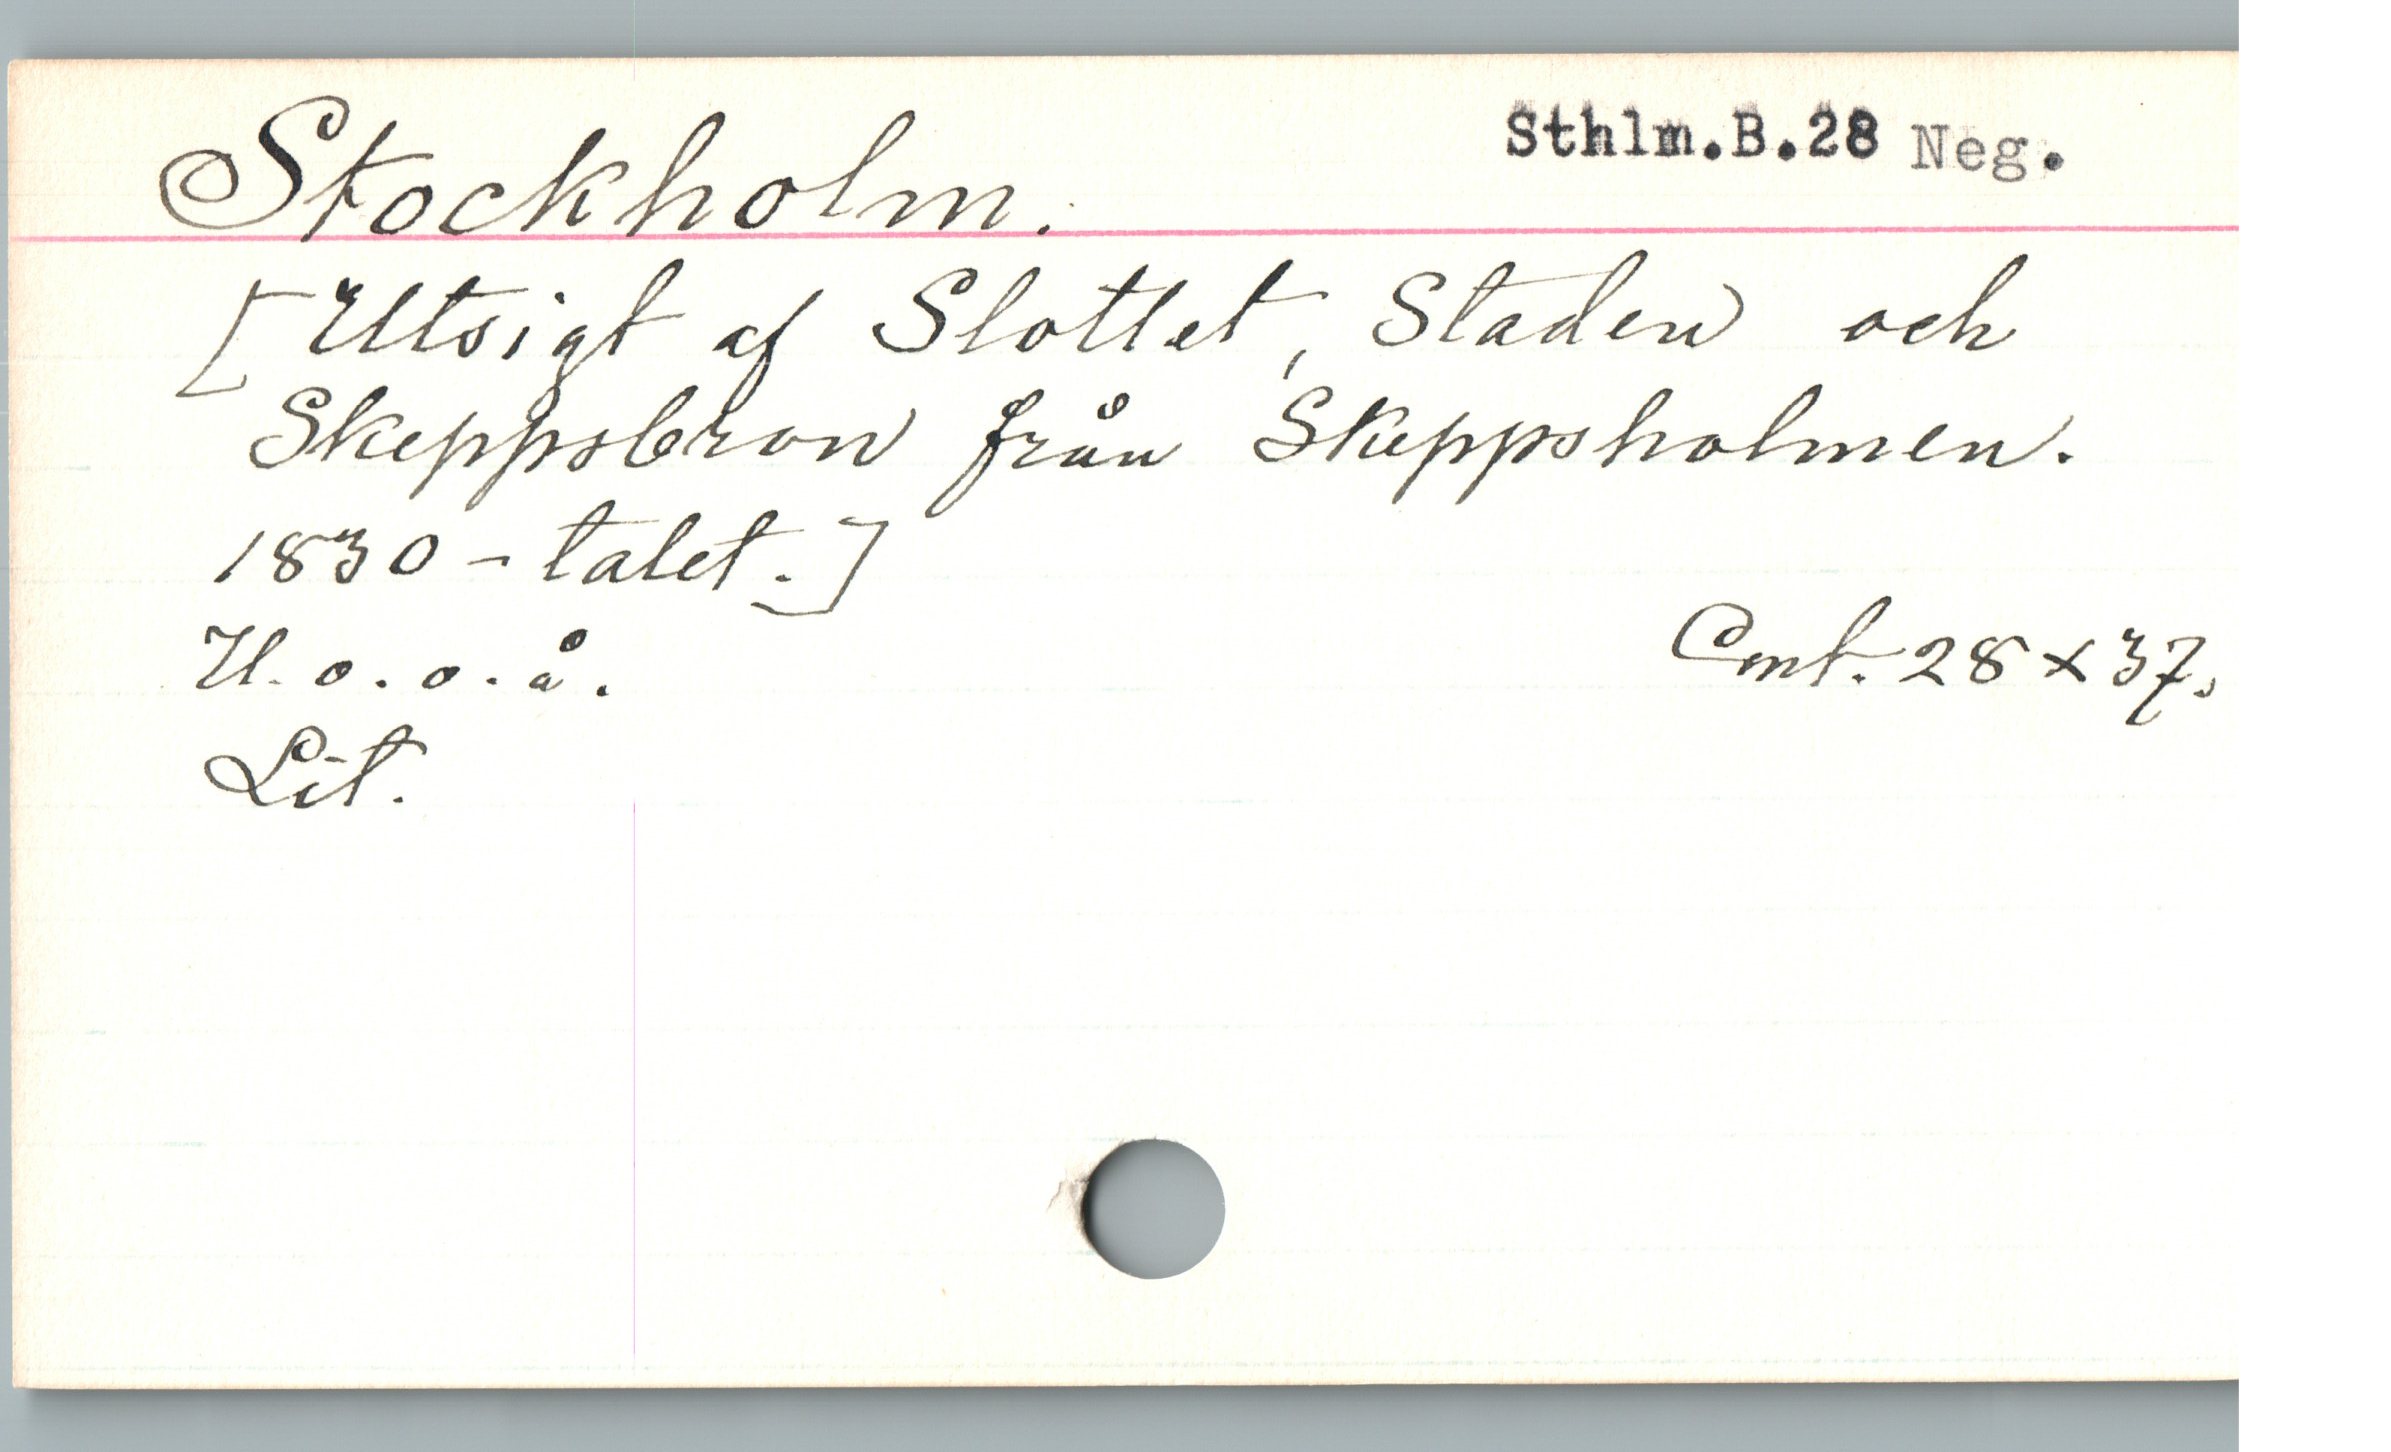 Stockholm. Sthlm.B.28 Neg.
[Utsigt af Slottet, Staden och
Skeppsbron från Skeppsholmen.
1830-talet.]
U. o. o. å. Cmt. 28 x 37.
Lit.